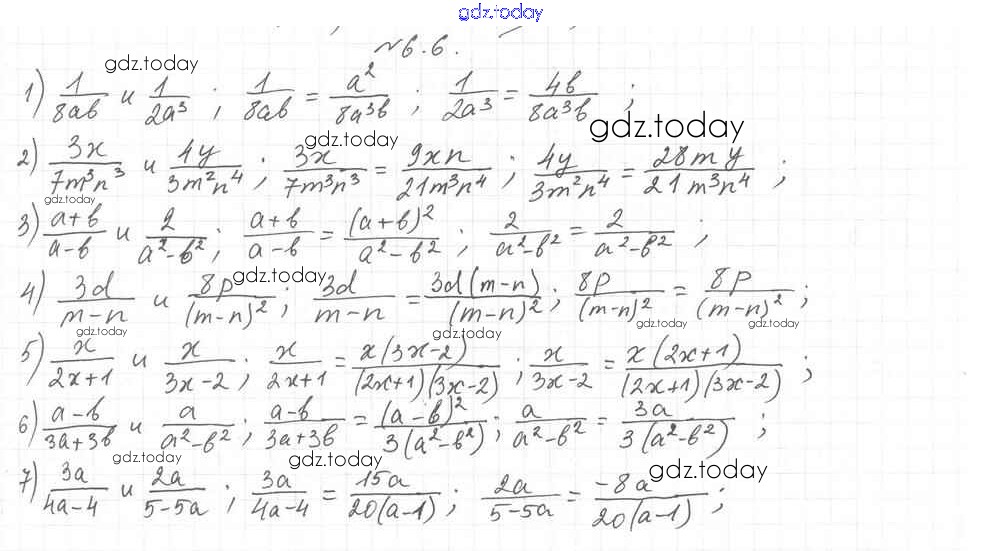 gdz.today
№6.6.
gdz.today
1) 1/(8ab) и 1/(2a³) ; 1/(8ab) = a²/(8a³b) ; 1/(2a³) = 4b/(8a³b) ;
gdz.today gdz.today
2) 3x/(7m³n³) и 4y/(3m²n⁴) ; 3x/(7m³n³) = 9xn/(21m³n⁴) ; 4y/(3m²n⁴) = 28my/(21m³n⁴) ;
gdz.today
3) (a+b)/(a-b) и 2/(a²-b²) ; (a+b)/(a-b) = (a+b)²/(a²-b²) ; 2/(a²-b²) = 2/(a²-b²) ;
gdz.today
4) 3d/(m-n) и 8p/(m-n)² ; 3d/(m-n) = 3d(m-n)/(m-n)² ; 8p/(m-n)² = 8p/(m-n)² ;
gdz.today gdz.today gdz.today gdz.today
5) x/(2x+1) и x/(3x-2) ; x/(2x+1) = x(3x-2)/((2x+1)(3x-2)) ; x/(3x-2) = x(2x+1)/((2x+1)(3x-2)) ;
6) (a-b)/(3a+3b) и a/(a²-b²) ; (a-b)/(3a+3b) = (a-b)²/(3(a²-b²)) ; a/(a²-b²) = 3a/(3(a²-b²)) ;
gdz.today gdz.today gdz.today
7) 3a/(4a-4) и 2a/(5-5a) ; 3a/(4a-4) = 15a/(20(a-1)) ; 2a/(5-5a) = -8a/(20(a-1)) ;